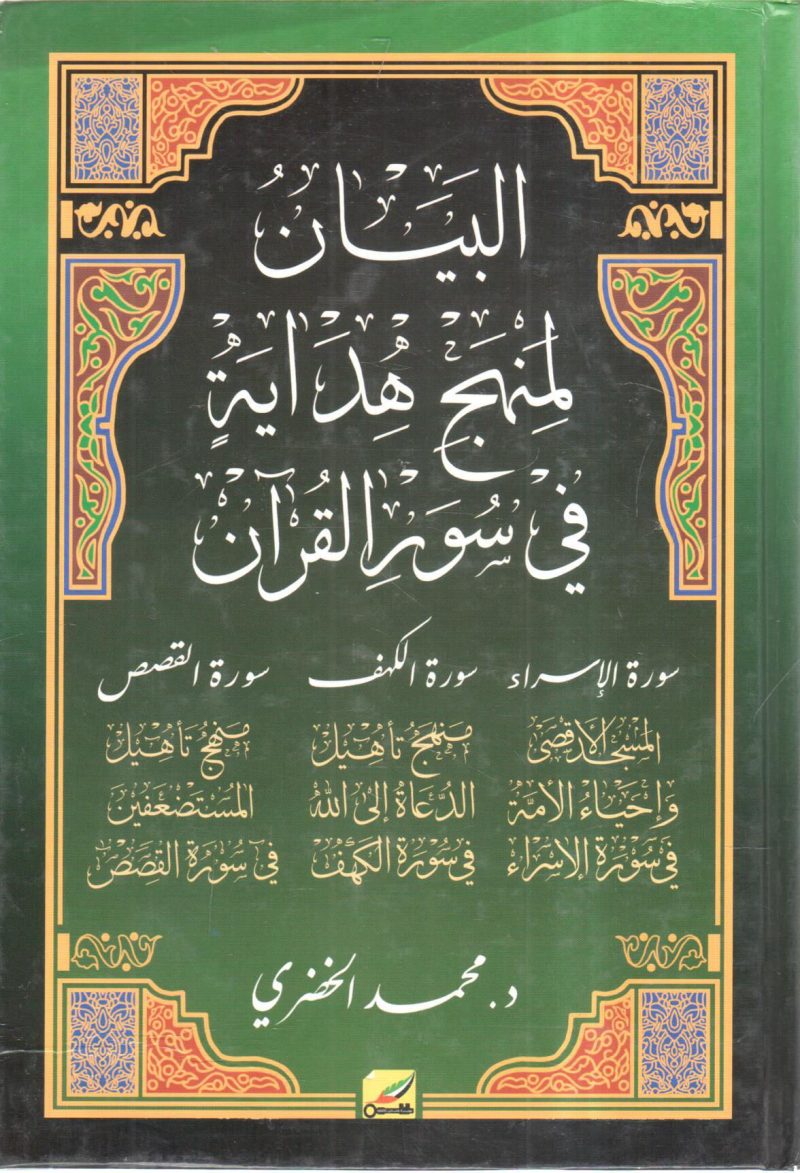 البَيَانُ
لِمَنْهَجِ هِدَايَةٍ
فِي سُوَرِ القُرْآنِ
سورة الإسراء
المسجد الأقصى
وإحياء الأمة
في سورة الإسراء
سورة الكهف
منهج تأهيل
الدعاة إلى الله
في سورة الكهف
سورة القصص
منهج تأهيل
المستضعفين
في سورة القصص
د. محمد الخضري